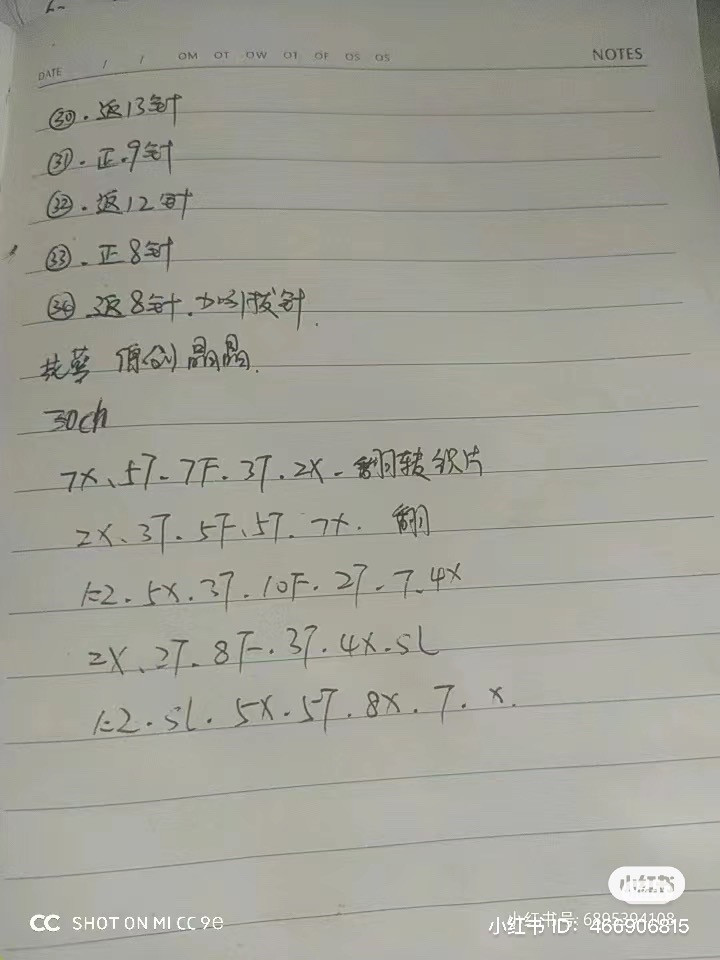 DATE / / OM OT OW OT OF OS OS NOTES
㉚.返13针
㉛.正.9针
㉜.返12针
㉝.正8针
㉞返8针.加引拔针.
花萼 原创晶晶.
30ch
7X、5T.7F.3T.2X-翻转织片
2X、3T.5F、5T.7X. 翻
k2.5X.3T.10F.2T.7.4X
2X、2T.8F.3T.4X.SL
k2.SL.5X.5T.8X.7.X.
小红书
小红书号: 6895394108
CC SHOT ON MI CC 9e
小红书 ID: 466906815